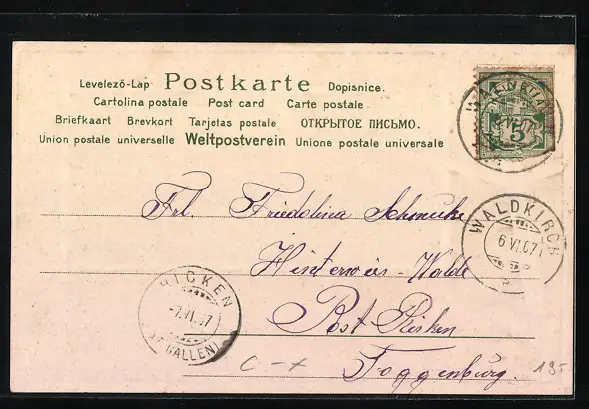 Levelező-Lap Postkarte Dopisnice.
Cartolina postale Post card Carte postale
Briefkaart Brevkort Tarjetas postale ОТКРЫТОЕ ПИСЬМО.
Union postale universelle Weltpostverein Unione postale universale
5
WALDKIRCH
6 VI.07
Frl. Friedolina Schmucki
Post Ricken
Toggenburg.
RICKEN
-7.VI.07
(ST GALLEN)
C - x
195